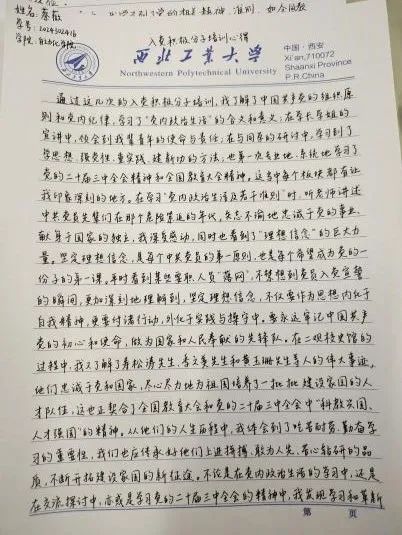 姓名:秦毅
学号:2024302416
学院:自动化学院
入党积极分子培训心得
西北工业大学
Northwestern Polytechnical University
中国·西安
Xi'an,710072
Shaanxi Province
P.R.China
通过这几次的入党积极分子培训,我了解了中国共产党的组织原
则和党内纪律,学习了“党内政治生活”的含义和意义;在季长军姐的
宣讲中,领会到我辈青年的使命与责任;在与同泰的研讨中,学习到了
学思想、强党性、重实践、建新功的方法;也第一次专业地、系统地学习了
党的二十届三中全会精神和全国教育大会精神。这当中每个板块都有让
我印象深刻的地方。在学习“党内政治生活及若干准则”时,听老师讲述
中共党员先辈们在那个危险紧迫的年代,矢志不渝地忠诚于党的事业、
献身于国家的独立,我深有感动,同时也看到了“理想信念”的巨大力
量。坚定理想信念,是每个中共党员的第一原则,也是每个希望成为党的一
份子的第一课。平时看到某些要职人员“落网”,不禁想到党员入党宣誓
的瞬间,更加深刻地理解到,坚定理想信念,不仅要作为思想内化于
自我精神,更要付诸行动,外化于实践与操守中。要永远牢记中国共产
党的初心和使命,做为国家和人民奉献的先锋队。在二观校史馆的
过程中,我又了解了寿松涛先生、季文美先生和黄玉珊先生等人的伟大事迹。
他们忠诚于党和国家,尽心尽力地为祖国培养了一批批建设家国的人
才队伍,这也正契合了全国教育大会和党的二十届三中全会中“科教兴国、
人才强国”的精神。从他们的人生历程中,我体会到了吃苦耐劳、勤奋学
习的重要性,我们也应传承好他们上进拼搏、敢为人先、苦心钻研的品
质,不断开拓建设家国的新征途。不论是在党内政治生活的学习中,还是
在交流探讨中,亦或是学习党的二十届三中全会的精神中,我发现学习和革新
第 页